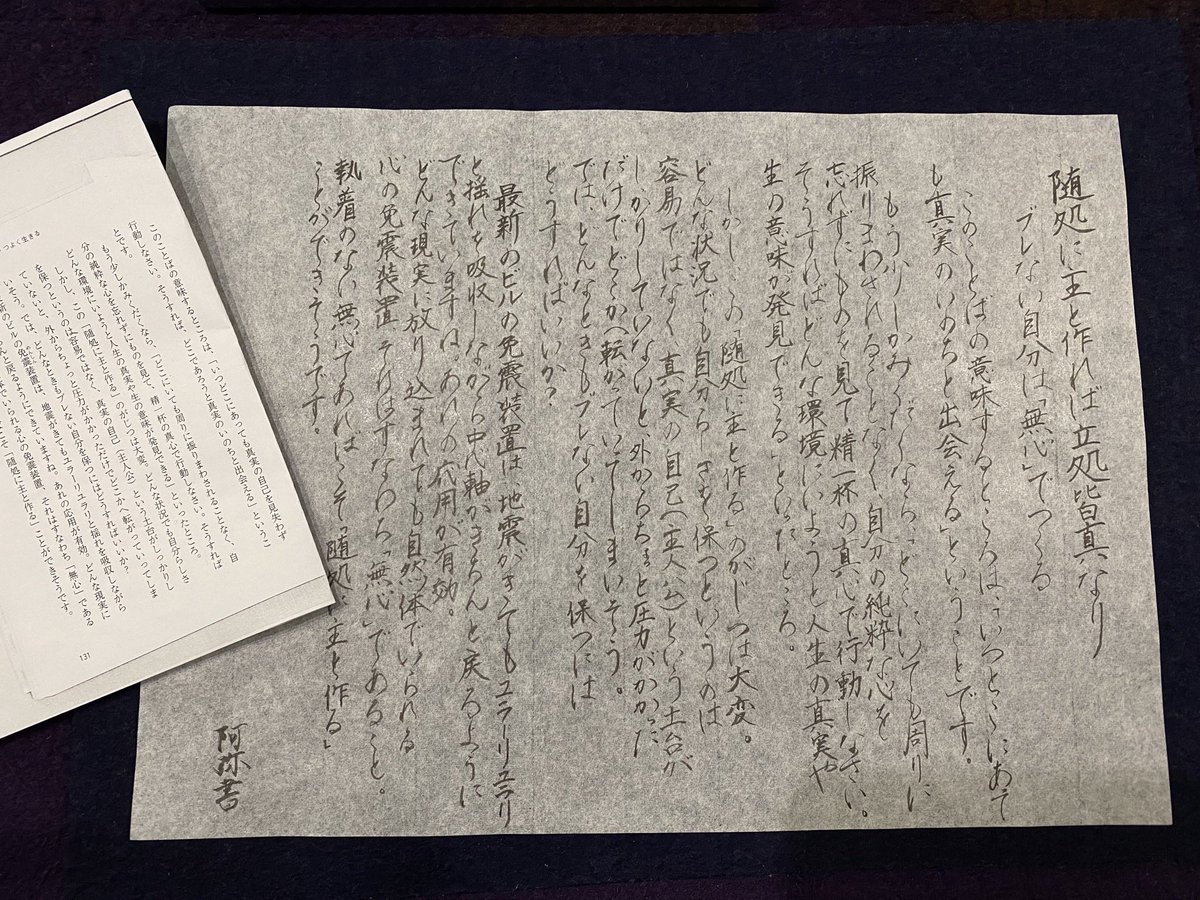 随処に主と作れば立処皆真なり
ブレない自分は「無心」でつくる
このことばの意味するところは、「いつどこにあって
も真実のいのちと出会える」ということです。
もう少しかみくだくなら、「どこにいても周りに
振りまわされることなく、自分の純粋な心を
忘れずにものを見て、精一杯の真心で行動しなさい。
そうすればどんな環境にいようと人生の真実や
生の意味が発見できる」といったところ。
しかし、この「随処に主と作る」のがじつは大変。
どんな状況でも自分らしさを保つというのは
容易ではなく、真実の自己(主人公)という土台が
しっかりしていないと、外からちょっと圧力がかかった
だけでどこかへ転がっていってしまいそう。
では、どんなときもブレない自分を保つには
どうすればいいか?
最新のビルの免震装置は、地震がきてもユラリユラリ
と揺れを吸収しながら中心軸がきちんと戻るように
できていますね。あれの応用が有効。
どんな現実に放り込まれても自然体でいられる
心の免震装置、それはすなわち「無心」であること。
執着のない無心であればこそ「随処に主と作る」
ことができそうです。
阿弥書
つよく生きる
このことばの意味するところは、「いつどこにあっても真実の自己を見失わず
行動しなさい。そうすれば、どこであろうと真実のいのちと出会える」というこ
とです。
もう少しかみくだくなら、「どこにいても周りに振りまわされることなく、自
分の純粋な心を忘れずにものを見て、精一杯の真心で行動しなさい。そうすれば
どんな環境にいようと人生の真実や生の意味が発見できる」といったところ。
しかし、この「随処に主と作る」のがじつは大変。どんな状況でも自分らしさ
を保つというのは容易ではなく、真実の自己(主人公)という土台がしっかりし
ていないと、外からちょっと圧力がかかっただけでどこかへ転がっていってしま
いそう。では、どんなときもブレない自分を保つにはどうすればいいか?
新のビルの免震装置は、地震がきてもユラリユラリと揺れを吸収しながら
んと戻るようにできていますね。あれの応用が有効。どんな現実に
体でいられる心の免震装置、それはすなわち「無心」である
こそ「随処に主と作る」ことができそうです。
131